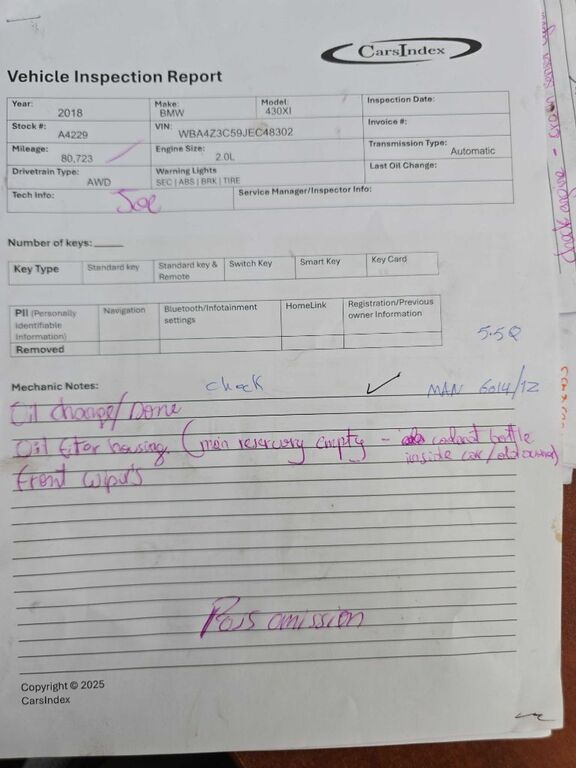 CarsIndex
Vehicle Inspection Report
Year: 2018 Make: BMW Model: 430XI Inspection Date:
Stock #: A4229 VIN: WBA4Z3C59JEC48302 Invoice #:
Mileage: 80,723 Engine Size: 2.0L Transmission Type: Automatic
Drivetrain Type: AWD Warning Lights SEC | ABS | BRK | TIRE Last Oil Change:
Tech Info: Joe Service Manager/Inspector Info:
Number of keys:
Key Type Standard key Standard key & Remote Switch Key Smart Key Key Card
PII (Personally Identifiable Information) Navigation Bluetooth/Infotainment settings HomeLink Registration/Previous owner Information
Removed
5.5Q
Mechanic Notes: check ✓ MAN 6014/1Z
Oil change/Done
Oil fitor housing. (main reservory empty - coolant bottle
inside car/
front wipers
Pass omission
Copyright © 2025
CarsIndex
check engine -